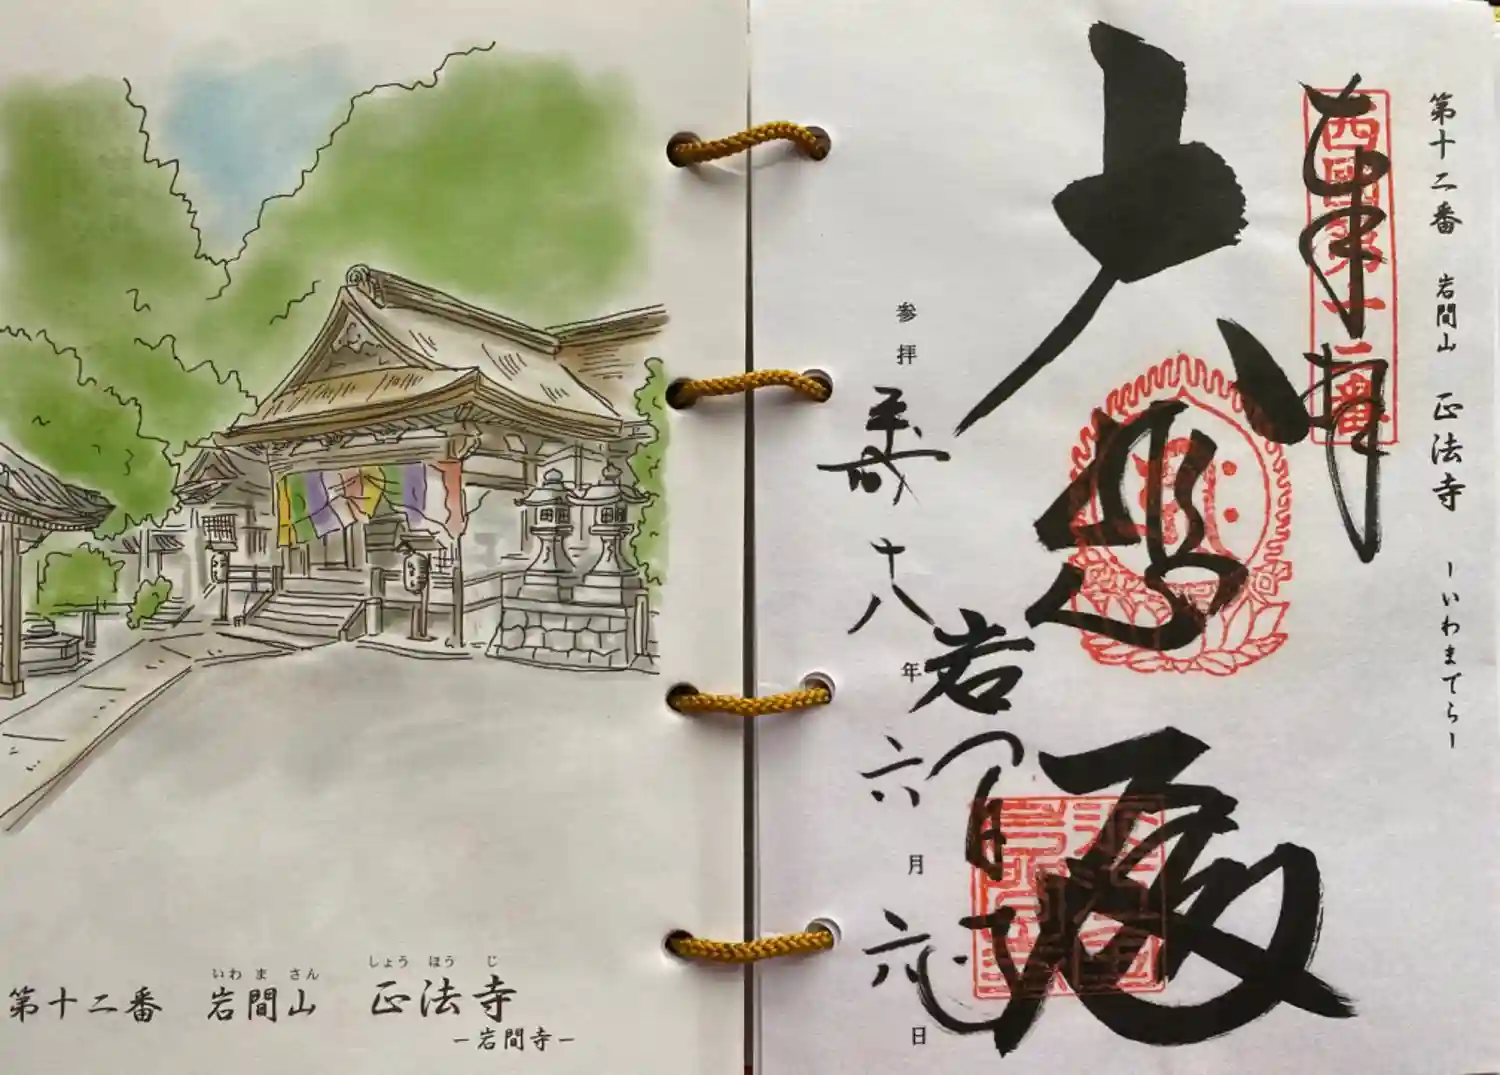 いわ ま さん しょう ほう じ
第十二番 岩間山 正法寺
－岩間寺－
第十二番 岩間山 正法寺 －いわまでら－
奉拝
西國第十二番
大悲殿
岩間寺
参拝 平成十八年六月六日